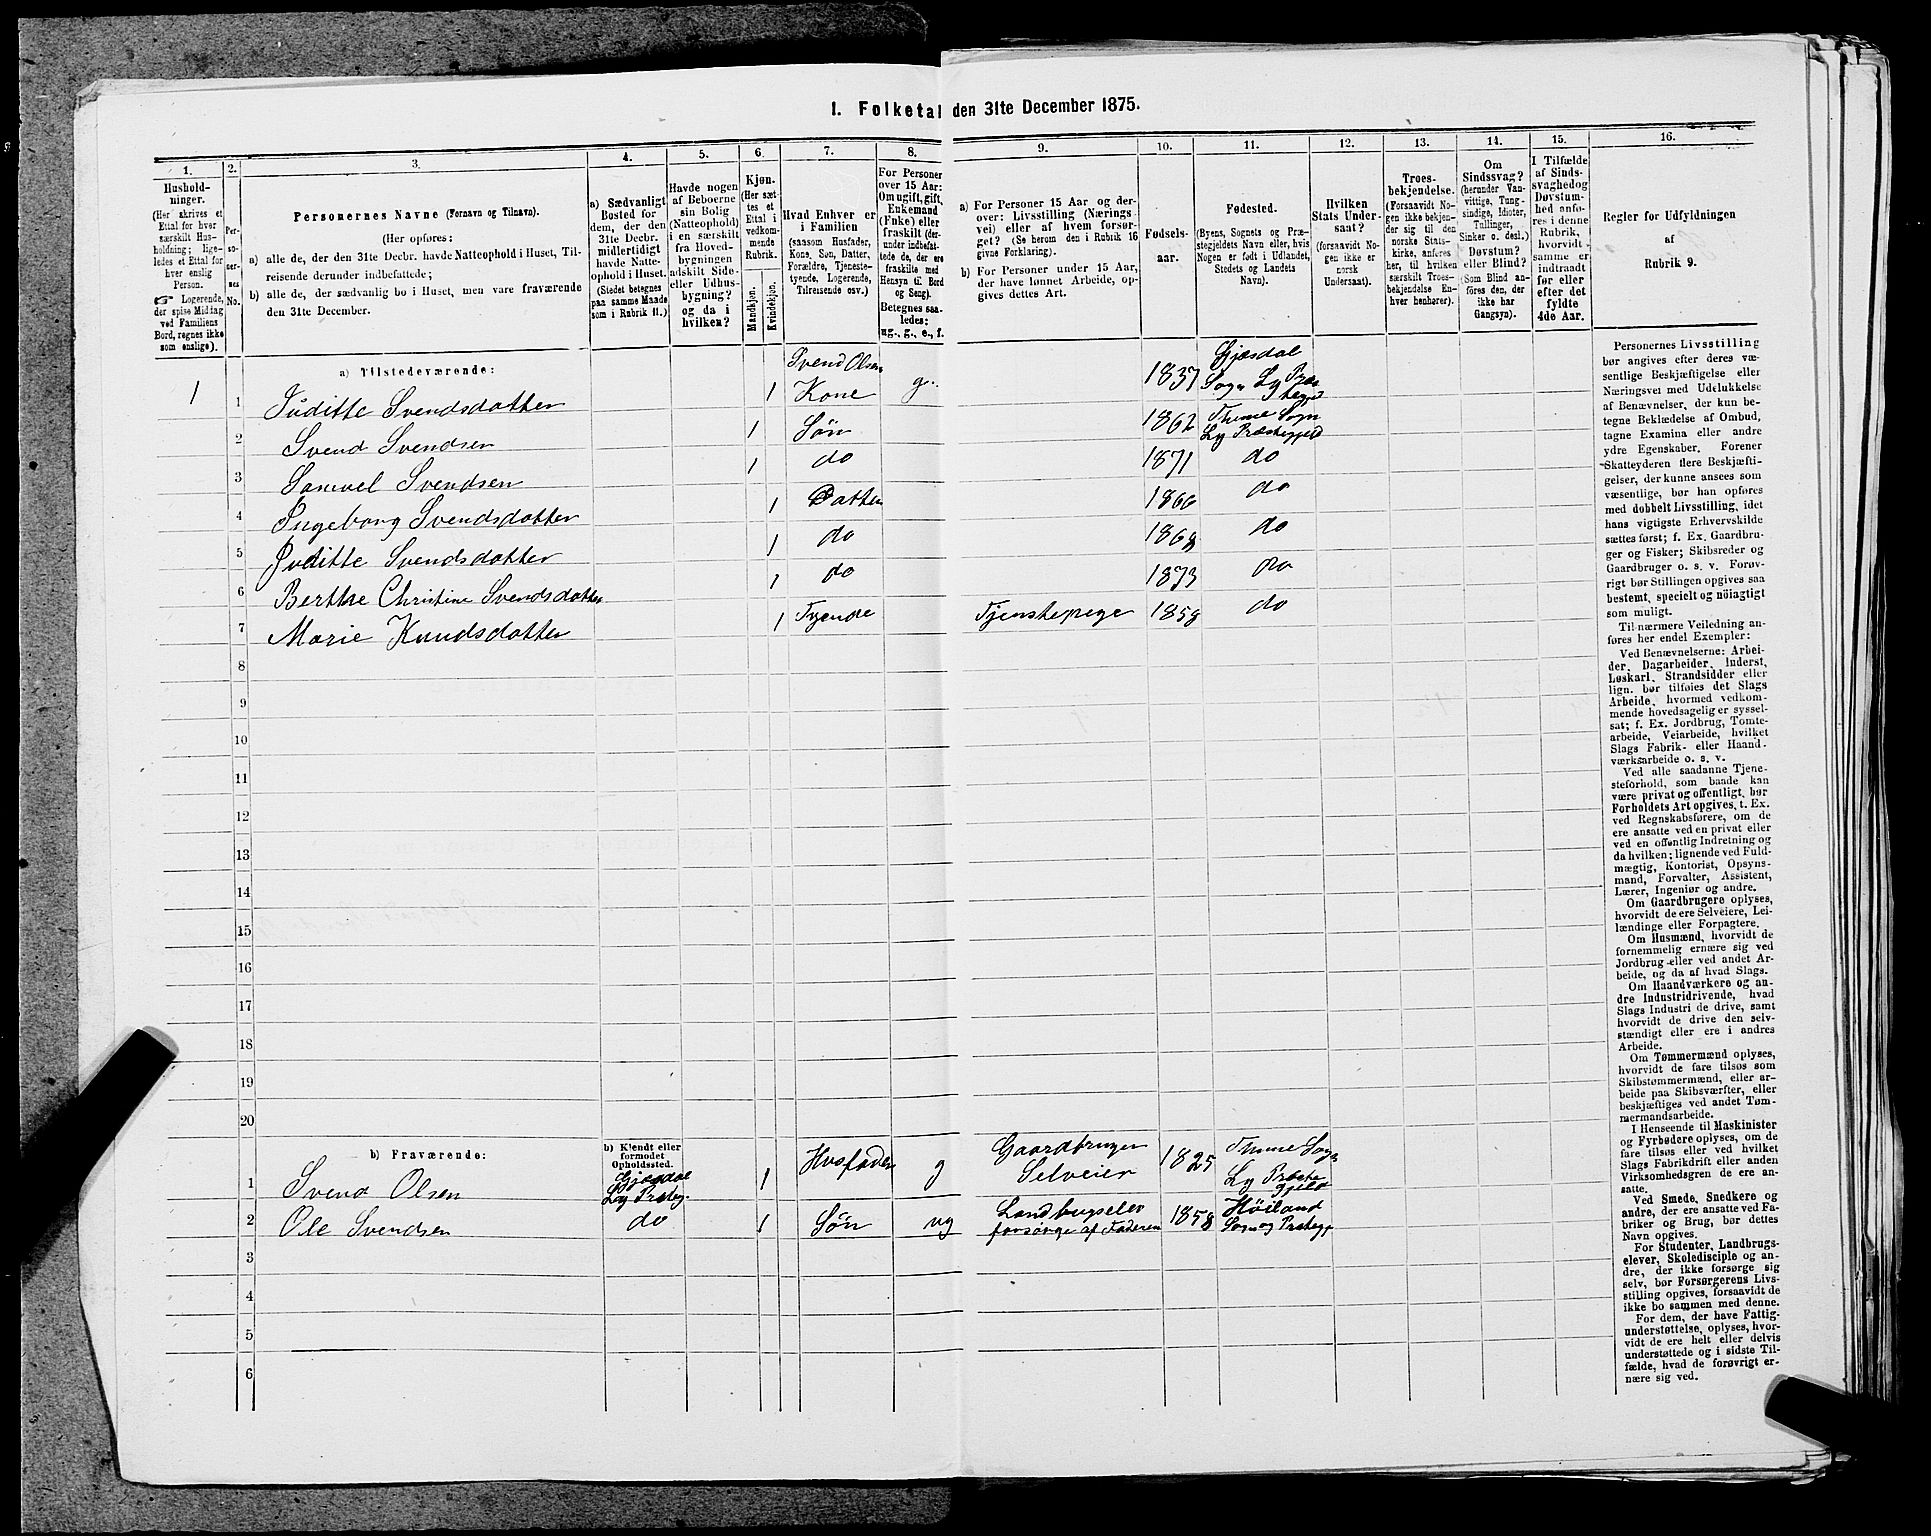 1. Folketal den 31te December 1875.
1.
2.
3.
4.
5.
6.
7.
8.
9.
10.
11.
12.
13.
14.
15.
16.
Husholdninger.
(Her skrives et Ettal for hver særskilt Husholdning; ligeledes et Ettal for hver enslig Person.
☞ Logerende, der spise Middag ved Familiens Bord, regnes ikke som enslige).
Personernes No.
Personernes Navne (Fornavn og Tilnavn).
(Her opføres:
a) alle de, der den 31te Decbr. havde Natteophold i Huset, Tilreisende derunder indbefattede;
b) alle de, der sædvanlig bo i Huset, men vare fraværende den 31te December.
a) Sædvanligt Bosted for dem, der den 31te Decbr. midlertidigt havde Natteophold i Huset. (Stedet betegnes paa samme Maade som i Rubrik 11.)
Havde nogen af Beboerne sin Bolig (Natteophold) i en særskilt fra Hovedbygningen adskilt Side- eller Udhusbygning? og da i hvilken?
Kjøn.
(Her sættes et Ettal i vedkommende Rubrik.
Mandkjøn.
Kvindekjøn.
Hvad Enhver er i Familien
(saasom Husfader, Kone, Søn, Datter, Forældre, Tjenestetyende, Logerende, Tilreisende osv.)
For Personer over 15 Aar: Om ugift, gift, Enkemand (Enke) eller fraskilt (derunder indbefattede de, der ere fraskilte med Hensyn til Bord og Seng).
Betegnes saaledes: ug., g., e., f.
a) For Personer 15 Aar og derover: Livsstilling (Næringsvei) eller af hvem forsørget? (Se herom den i Rubrik 16 givne Forklaring).
b) For Personer under 15 Aar, der have lønnet Arbeide, opgives dettes Art.
Fødselsaar.
Fødested.
(Byens, Sognets og Præstegjeldets Navn, eller hvis Nogen er født i Udlandet, Stedets og Landets Navn).
Hvilken Stats Undersaat?
(forsaavidt Nogen ikke er norsk Undersaat).
Troesbekjendelse.
(Forsaavidt Nogen ikke bekjender sig til den norske Statskirke, anføres her, til hvilken særskilt Troesbekjendelse Enhver henhører).
Om Sindssvag? (herunder Vanvittige, Tungsindige, Idioter, Tullinger, Sinker o. desl.) Døvstum? eller Blind? (Som Blind anføres den, der ikke har Gangsyn).
I Tilfælde af Sindssvaghed og Døvstumhed anføres i denne Rubrik, hvorvidt samme er indtraadt før eller efter det fyldte 4de Aar.
Regler for Udfyldningen af Rubrik 9.
a) Tilstedeværende:
1 1 Juditte Svendsdatter 1 Svend Olsens Kone g. 1837 Gjæsdal Sogn Ly Præstegjd
2 Svend Svendsen 1 Søn 1862 Thime Sogn Ly Præstegjeld
3 Samvel Svendsen 1 do 1871 do
4 Ingeborg Svendsdatter 1 Datter 1866 do
5 Juditte Svendsdatter 1 do 1868 do
6 Berthe Christine Svendsdatter 1 do 1873 do
7 Marie Knudsdatter 1 Tyende Tjenstepige 1858 do
8
9
10
11
12
13
14
15
16
17
18
19
20
b) Fraværende:
b) Kjendt eller formodet Opholdssted.
1 Svend Olsen Gjæsdal Ly Præsteg. 1 Husfader g Gaardbruger Selveier 1825 Thime Sogn Ly Præstegjeld
2 Ole Svendsen do 1 Søn ug Landbrugselev forsørge af Faderen 1858 Höiland Sogn og Præstegj
3
4
5
6
Personernes Livsstilling
bør angives efter deres væ-
sentlige Beskjæftigelse eller
Næringsvei med Udelukkelse
af Benævnelser, der kun be-
tegne Beklædelse af Ombud,
tagne Examina eller andre
ydre Egenskaber. Forener
Skatteyderen flere Beskjæfti-
gelser, der kunne ansees som
væsentlige, bør han opføres
med dobbelt Livsstilling, idet
hans vigtigste Erhvervskilde
sættes først; f. Ex. Gaardbru-
ger og Fisker; Skibsreder og
Gaardbruger o. s. v. Forøv-
rigt bør Stillingen opgives saa
bestemt, specielt og nöiagtigt
som muligt.
Til nærmere Veiledning an-
føres her endel Exempler:
Ved Benævnelserne: Arbei-
der, Dagarbeider, Inderst,
Løskarl, Strandsidder eller
lign. bør tilføies det Slags
Arbeide, hvormed vedkom-
mende hovedsagelig er syssel-
sat; f. Ex. Jordbrug, Tomte-
arbeide, Veiarbeide, hvilket
Slags Fabrik- eller Haand-
værksarbeide o. s. v.
Ved alle saadanne Tjene-
steforhold, som baade kan
være privat og offentligt, bør
Forholdets Art opgives, t. Ex.
ved Regnskabsførere, om de
ere ansatte ved en privat eller
ved en offentlig Indretning og
da hvilken; lignende ved Fuld-
mægtig, Kontorist, Opsyns-
mand, Forvalter, Assistent,
Lærer, Ingeniør og andre.
Om Gaardbrugere oplyses,
hvorvidt de ere Selveiere, Lei-
lændinge eller Forpagtere.
Om Husmænd, hvorvidt de
fornemmelig ernære sig ved
Jordbrug eller ved andet Ar-
beide, og da af hvad Slags.
Om Haandværkere og an-
dre Industridrivende, hvad
Slags Industri de drive, samt
hvorvidt de drive den selv-
stændigt eller ere i andres
Arbeide.
Om Tømmermænd oplyses,
hvorvidt de fare tilsøs som
Skibstømmermænd, eller ar-
beide paa Skibsværfter, eller
beskjæftiges ved andet Tøm-
mermandsarbeide.
I Henseende til Maskinister
og Fyrbødere oplyses, om de
fare tilsøs eller ved hvilket
Slags Fabrikdrift eller anden
Virksomhedsgren de ere an-
satte.
Ved Smede, Snedkere og
andre, der ere ansatte ved Fa-
briker og Brug, bør dettes
Navn opgives.
For Studenter, Landbrugs-
elever, Skoledisciple og an-
dre, der ikke forsørge sig
selv, bør Forsørgerens Livs-
stilling opgives, forsaavidt de
ikke bo sammen med denne.
For dem, der have Fattig-
understøttelse, oplyses, hvor-
vidt de ere helt eller delvis
understøttede og i sidste Til-
fælde, hvad de forøvrigt er-
nære sig ved.